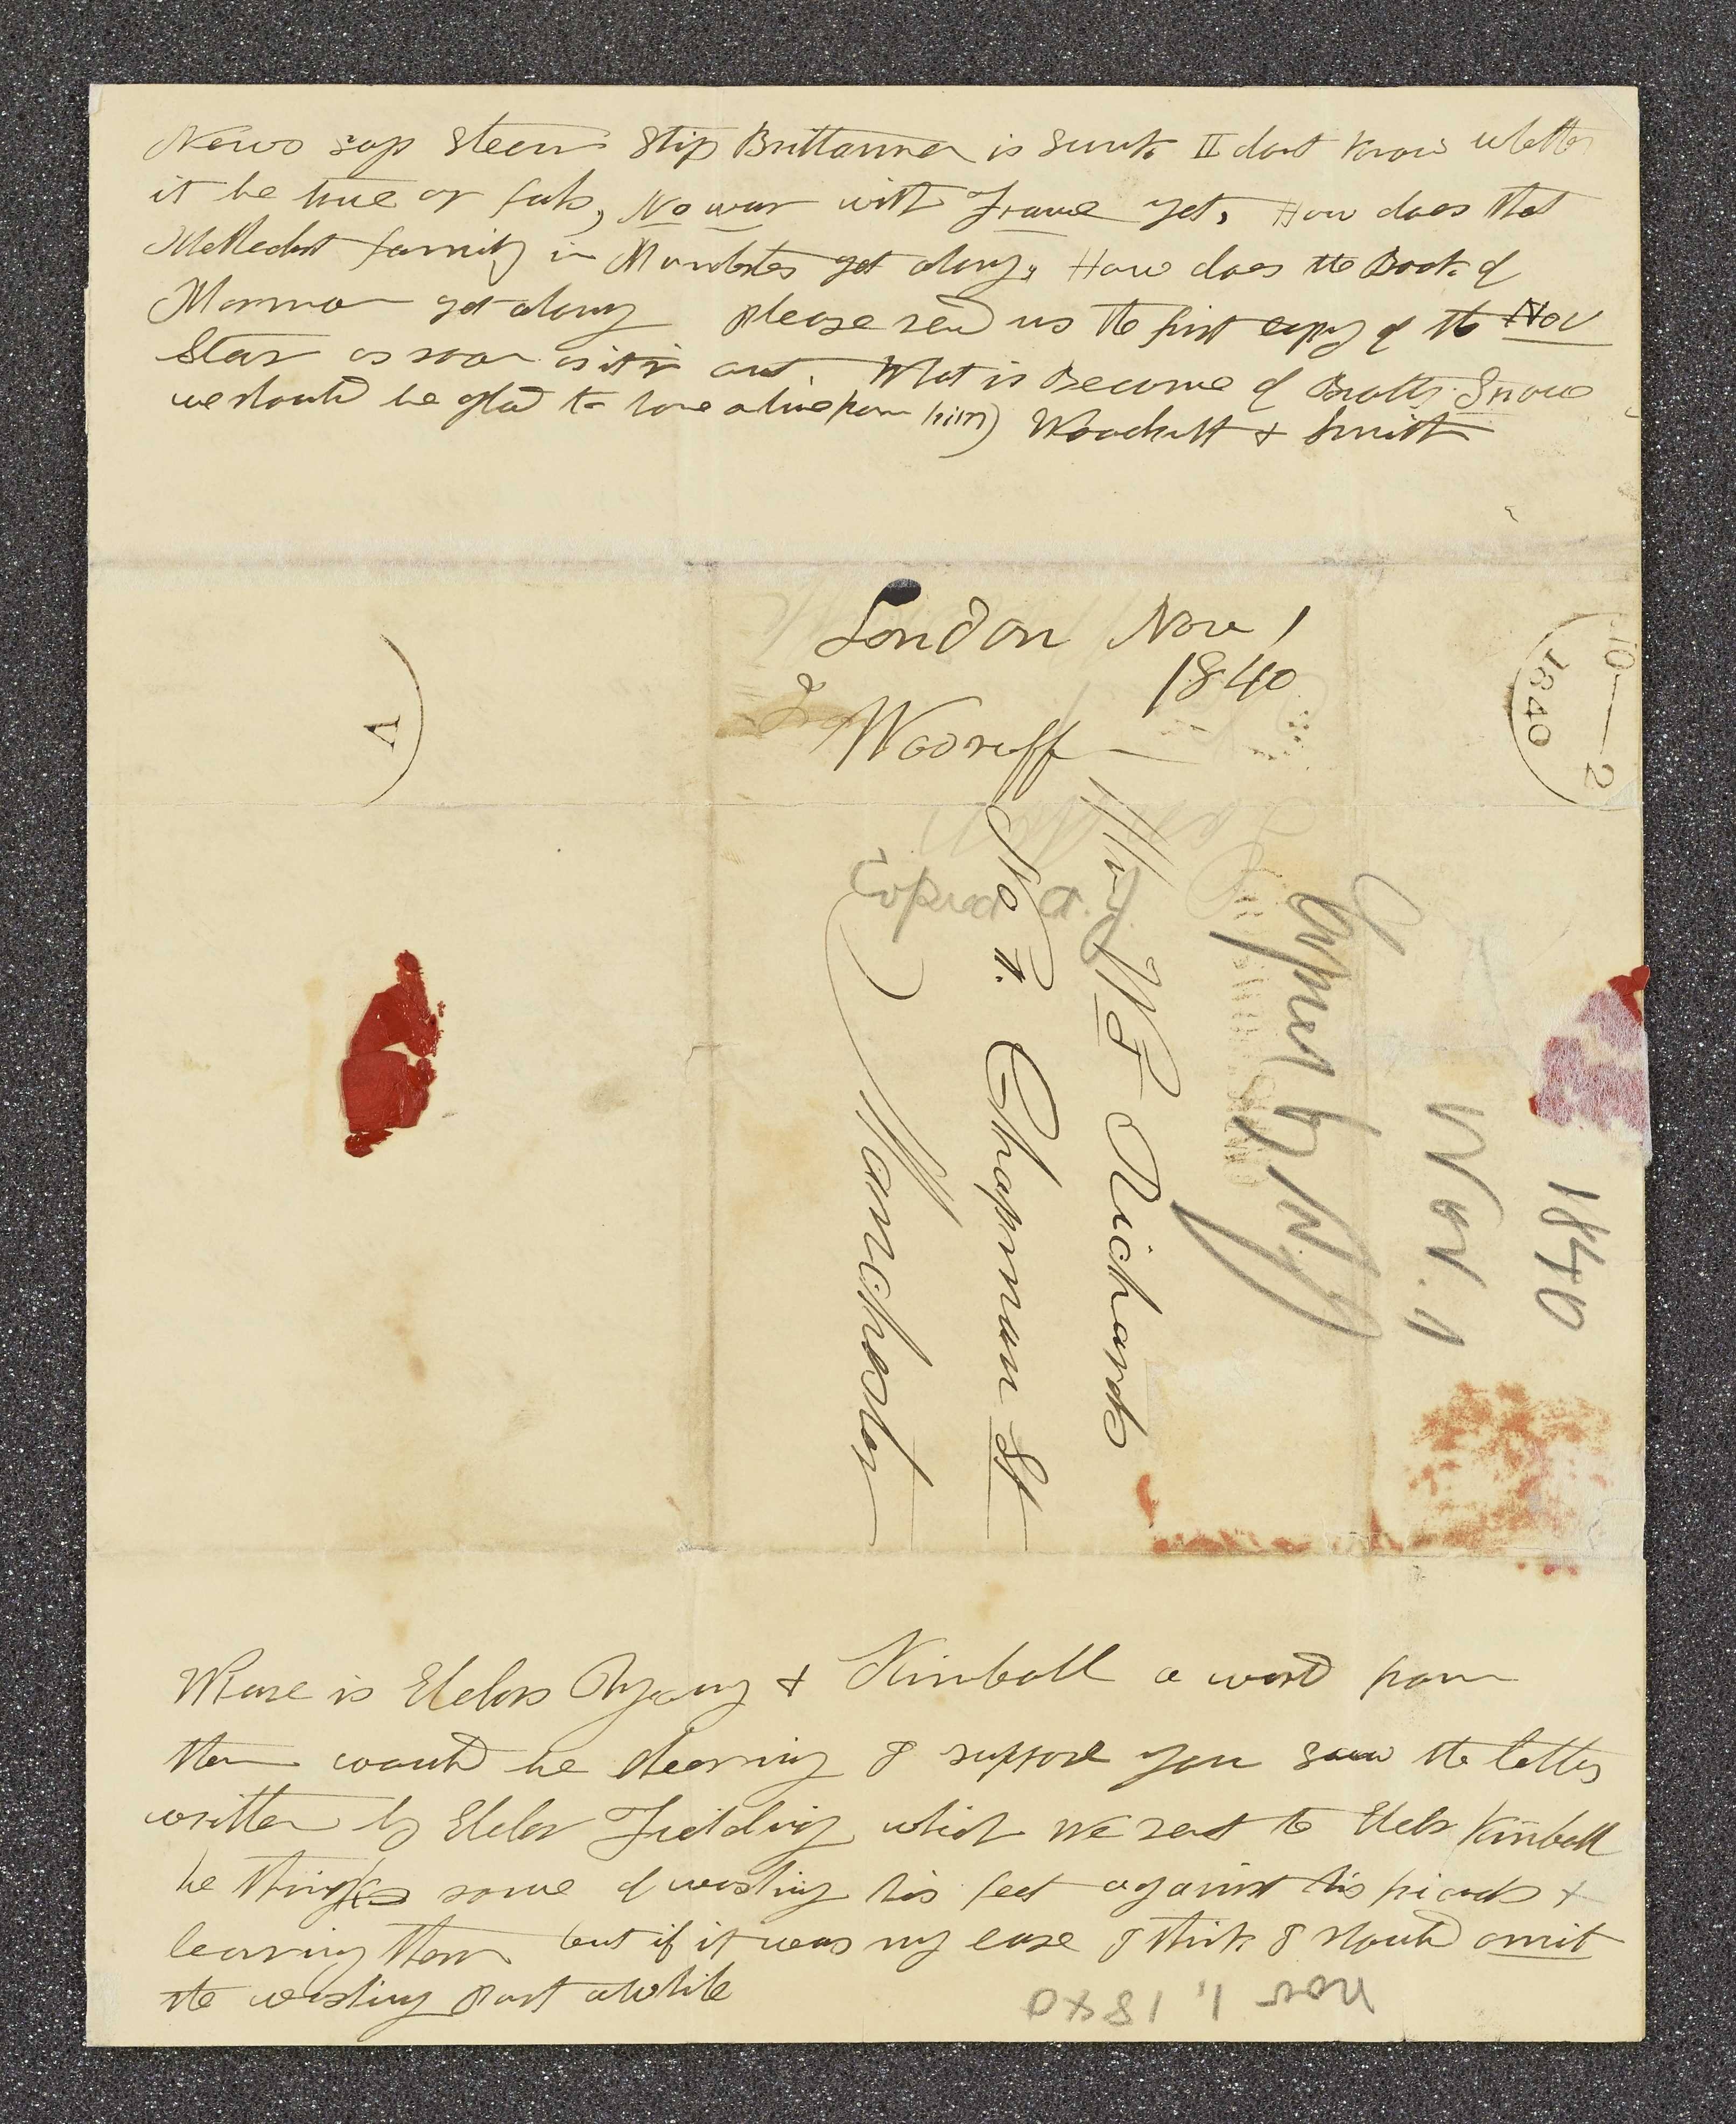 News says Steem Ship Brittanna is sunk. II dont know whether
it be true or fals, No war with France yet, How does that
Methodist family in Manchester get along, How does the Book of
Mormon get along please send us the first copy of the Nov
Star as soon as it is out. What is Become of Broth Snow
we should be glad to have a line from him) Woodruff & Smith
London Nov 1
1840
Woodruff
Mr W Richards
No 1. Chapman St
Manchester
Copied
Copied by
Nov. 1
1840
10—2
1840
A
Whare is Elders Young & Kimball a word from
them would be chearing I suppose you saw the letter
written by Elder Fielding which we sent to Elder Kimball
he thinks some of washing his feet against his friends &
leaving them but if it was my case I think I should omit
the washing part awhile
Nov 1, 1840